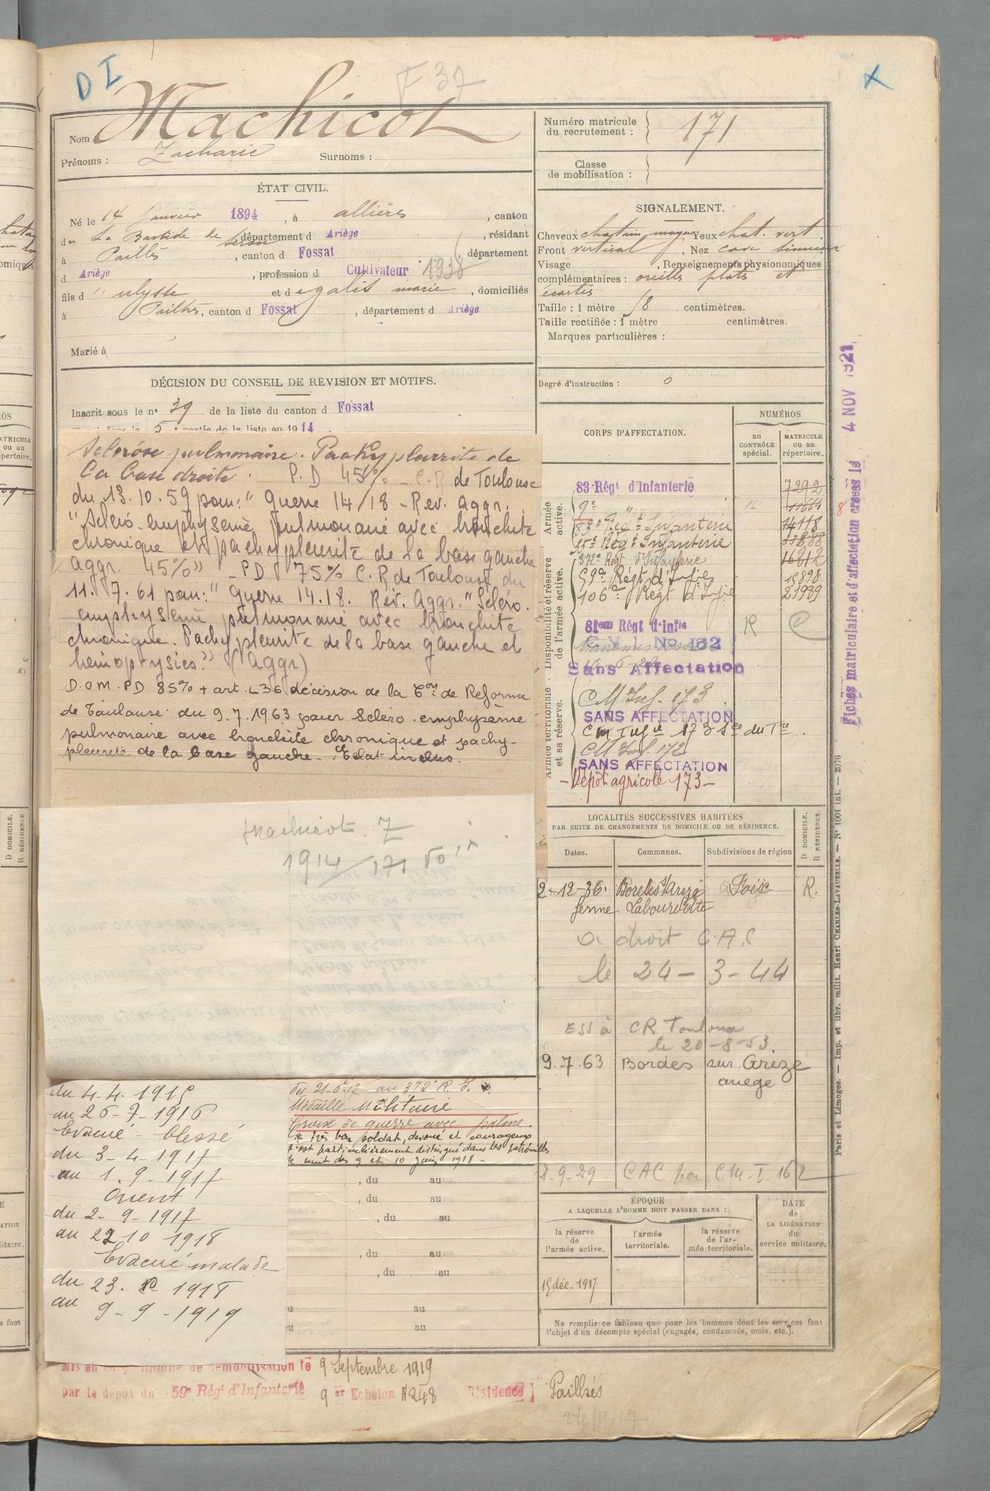 DI
F 37
X
Nom Machicot
Prénoms : Zacharie Surnoms :
Numéro matricule du recrutement : 171
Classe de mobilisation :
ÉTAT CIVIL.
Né le 14 Janvier 1894, à allières, canton
de La Bastide de Serou département d Ariège, résidant
à Pailhès, canton d Fossat département
d Ariège, profession d Cultivateur 1938
fils d ulysse et d egalit marie, domiciliés
à Pailhès, canton d Fossat, département d Ariège
Marié à
SIGNALEMENT.
Cheveux chatain moyen Yeux chat. vert
Front vertical, Nez cave sinueux
Visage, Renseignements physionomiques
complémentaires : oreilles plats et
écartés
Taille : 1 mètre 58 centimètres.
Taille rectifiée : 1 mètre centimètres.
Marques particulières :
Degré d'instruction : 0
DÉCISION DU CONSEIL DE REVISION ET MOTIFS.
Inscrit sous le n° 39 de la liste du canton d Fossat
5e partie de la liste en 1914
Sclérose pulmonaire. Pachypleurite de
la base droite. P.D 45% - C.R de Toulouse
du 13.10.59 pour: " Guerre 14/18 - Rév. Aggr.
"Scléro-emphysème pulmonaire avec bronchite
chronique et pachypleurite de la base gauche
aggr. 45%" - PD 75% C.R de Toulouse du
11.7.61 pour: " Guerre 14.18. Rév. Aggr. " Scléro.
emphysème pulmonaire avec bronchite
chronique. Pachypleurite de la base gauche et
hémoptysies." (aggr)
D.O.M. PD 85% + art. L36 décision de la Con de Réforme
de Toulouse du 9.7.1963 pour Scléro-emphysème
pulmonaire avec bronchite chronique et pachy-
pleurite de la base gauche. Etat inclus.
Machicot. Z
1914/171
du 4-4-1915
au 26-7-1916
Evacué blessé
du 3-4-1917
au 1-9-1917
Orient
du 2-9-1917
au 22 10 1918
Evacué malade
du 23. 10 1918
au 9-9-1919
au 372e R. I.
Médaille Militaire
Croix de guerre avec palme.
très bon soldat, dévoué et courageux
s'est particulièrement distingué dans les patrouilles
la nuit des 9 et 10 juin 1918 -
, du au
, du au
, du au
, du au
, du au
au
au
CORPS D'AFFECTATION.
NUMÉROS
AU CONTRÔLE spécial.
MATRICULE ou au répertoire.
Armée active.
Disponibilité et réserve de l'armée active.
Armée territoriale et sa réserve.
83e Régt d'Infanterie 7292
9e 11664
83e Régt Infanterie 14118
15e Régt Infanterie
372e Régt d'Infanterie 16912
59e Régt d'Infie 15898
106e Régt d'Infie 23989
81em Régt d'infie R
C M I No 182
Sans Affectation
CM Inf. 173
SANS AFFECTATION
CM Infie 173
CM Inf 172
SANS AFFECTATION
- Dépôt agricole 173 -
Fiches matriculaire et d'affectation créées le 4 NOV 1921
LOCALITÉS SUCCESSIVES HABITÉES
PAR SUITE DE CHANGEMENTS DE DOMICILE OU DE RÉSIDENCE.
Dates. Communes. Subdivisions de région
D DOMICILE. R RÉSIDENCE.
2-12-36. Bordes s/Arize Foix R.
ferme Labourdette
a droit C.A.C
le 24-3-44
ESS à CR Toulouse
le 20-8-53
9.7.63 Bordes sur Arize
ariège
2-9-29 CAC CM-I. 162
ÉPOQUE
A LAQUELLE L'HOMME DOIT PASSER DANS :
la réserve de l'armée active.
l'armée territoriale.
la réserve de l'armée territoriale.
DATE de LA LIBÉRATION du service militaire.
15 déc. 1917
Ne remplir ce tableau que pour les hommes dont les services font
l'objet d'un décompte spécial (engagés, condamnés, omis, etc.).
Mis en congé illimité de démobilisation le 9 Septembre 1919
par le dépôt du 59e Régt d'Infanterie 9 er Echelon N 248 Résidence Pailhès
Paris et Limoges. — Imp. et libr. milit. Henri CHARLES-LAVAUZELLE. — N° 1001 int. — 2076